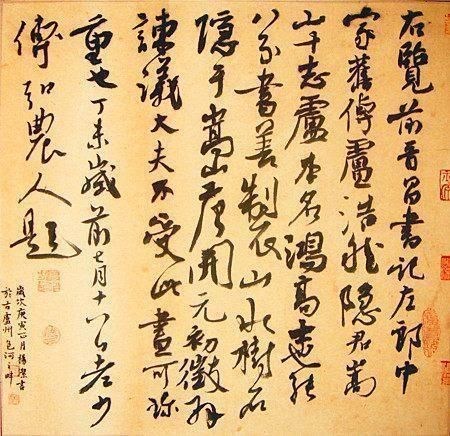 右覽前晉昌書記左郎中
家舊傳盧浩然隱君嵩
山十志盧本名鴻高士也能
八分書善製山水樹石
隱于嵩山唐開元初徵拜
諫議大夫不受此畫可珍
重也丁未歲前七月十八日老少
傅弘農人題
歲次庚寅月楊書
於古廬州包河之畔